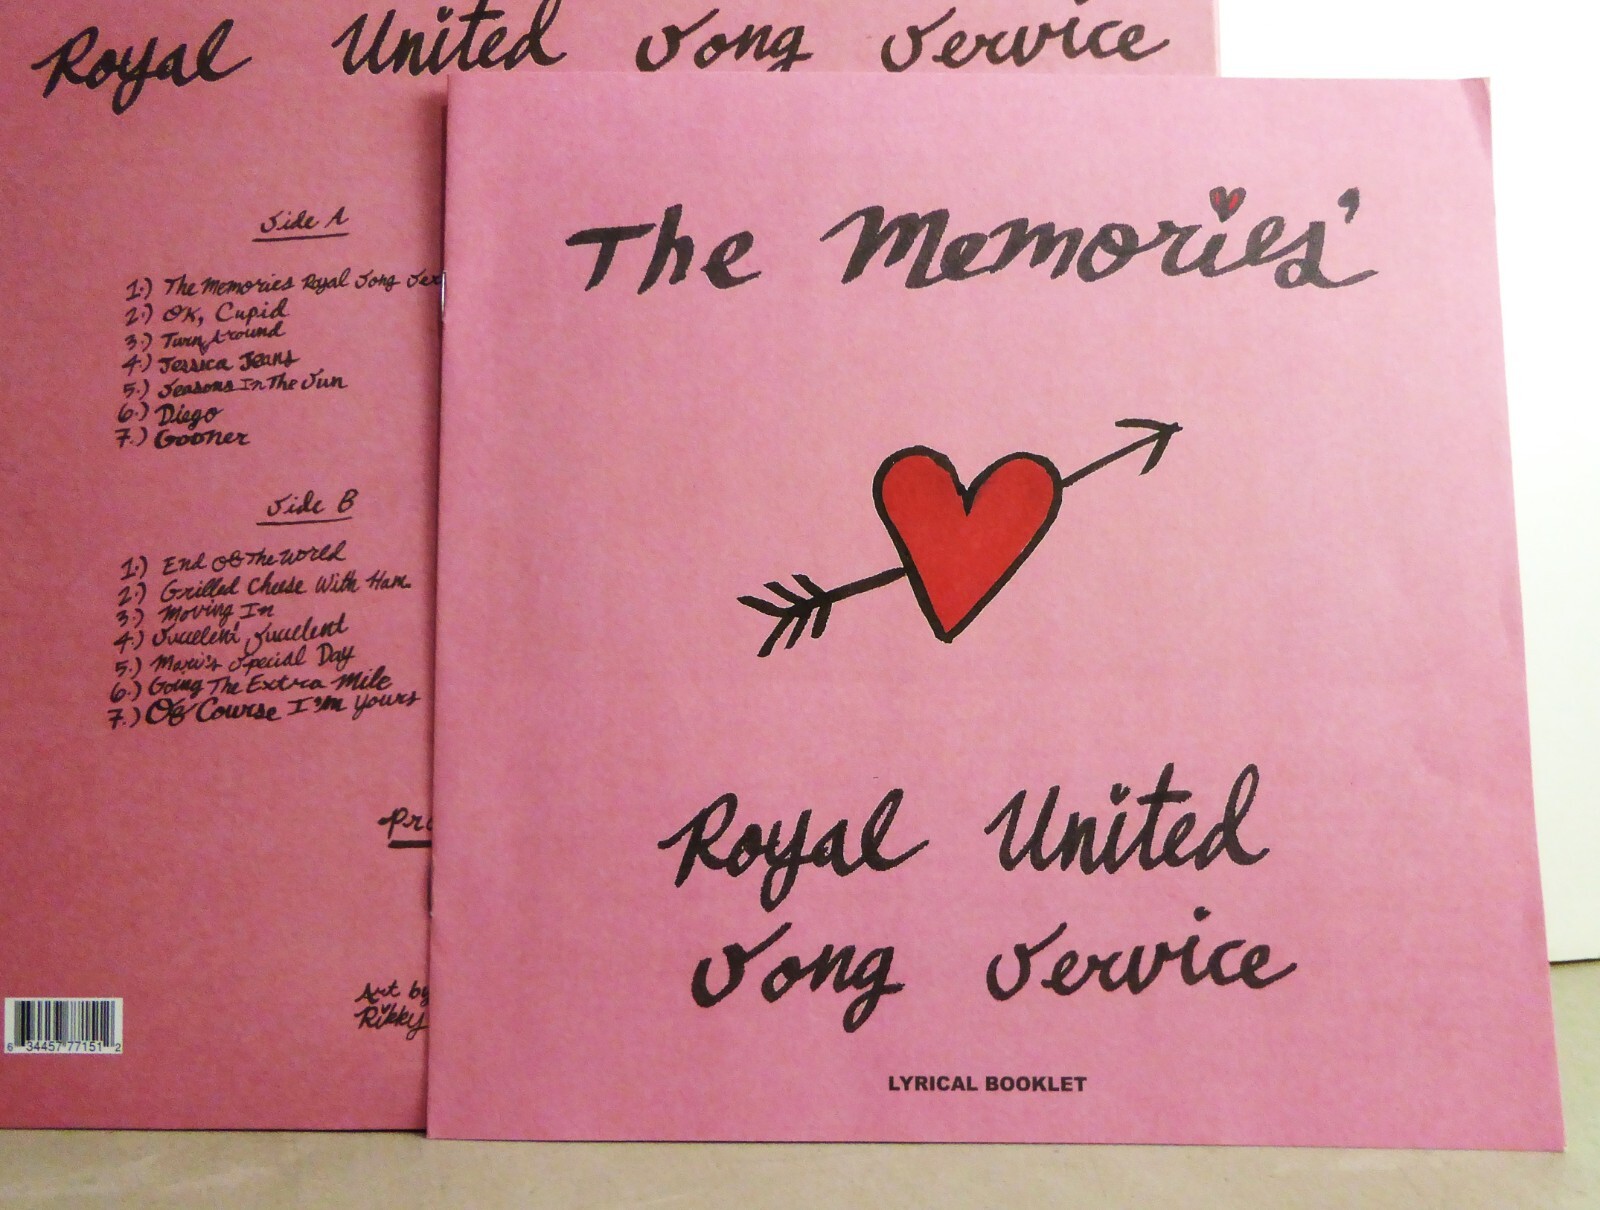 Royal United Song Service
Side A
1.) The Memories Royal Song Ser
2.) OK, Cupid
3.) Turn Around
4.) Jessica Jeans
5.) Seasons In The Sun
6.) Diego
7.) Gooner
Side B
1.) End Of The World
2.) Grilled Cheese With Ham
3.) Moving In
4.) Succelent Succelent
5.) Mari's Special Day
6.) Going The Extra Mile
7.) Of Course I'm Yours
Art by
Rikky
6 34457 77151 2
The Memories'
Royal United
Song Service
LYRICAL BOOKLET